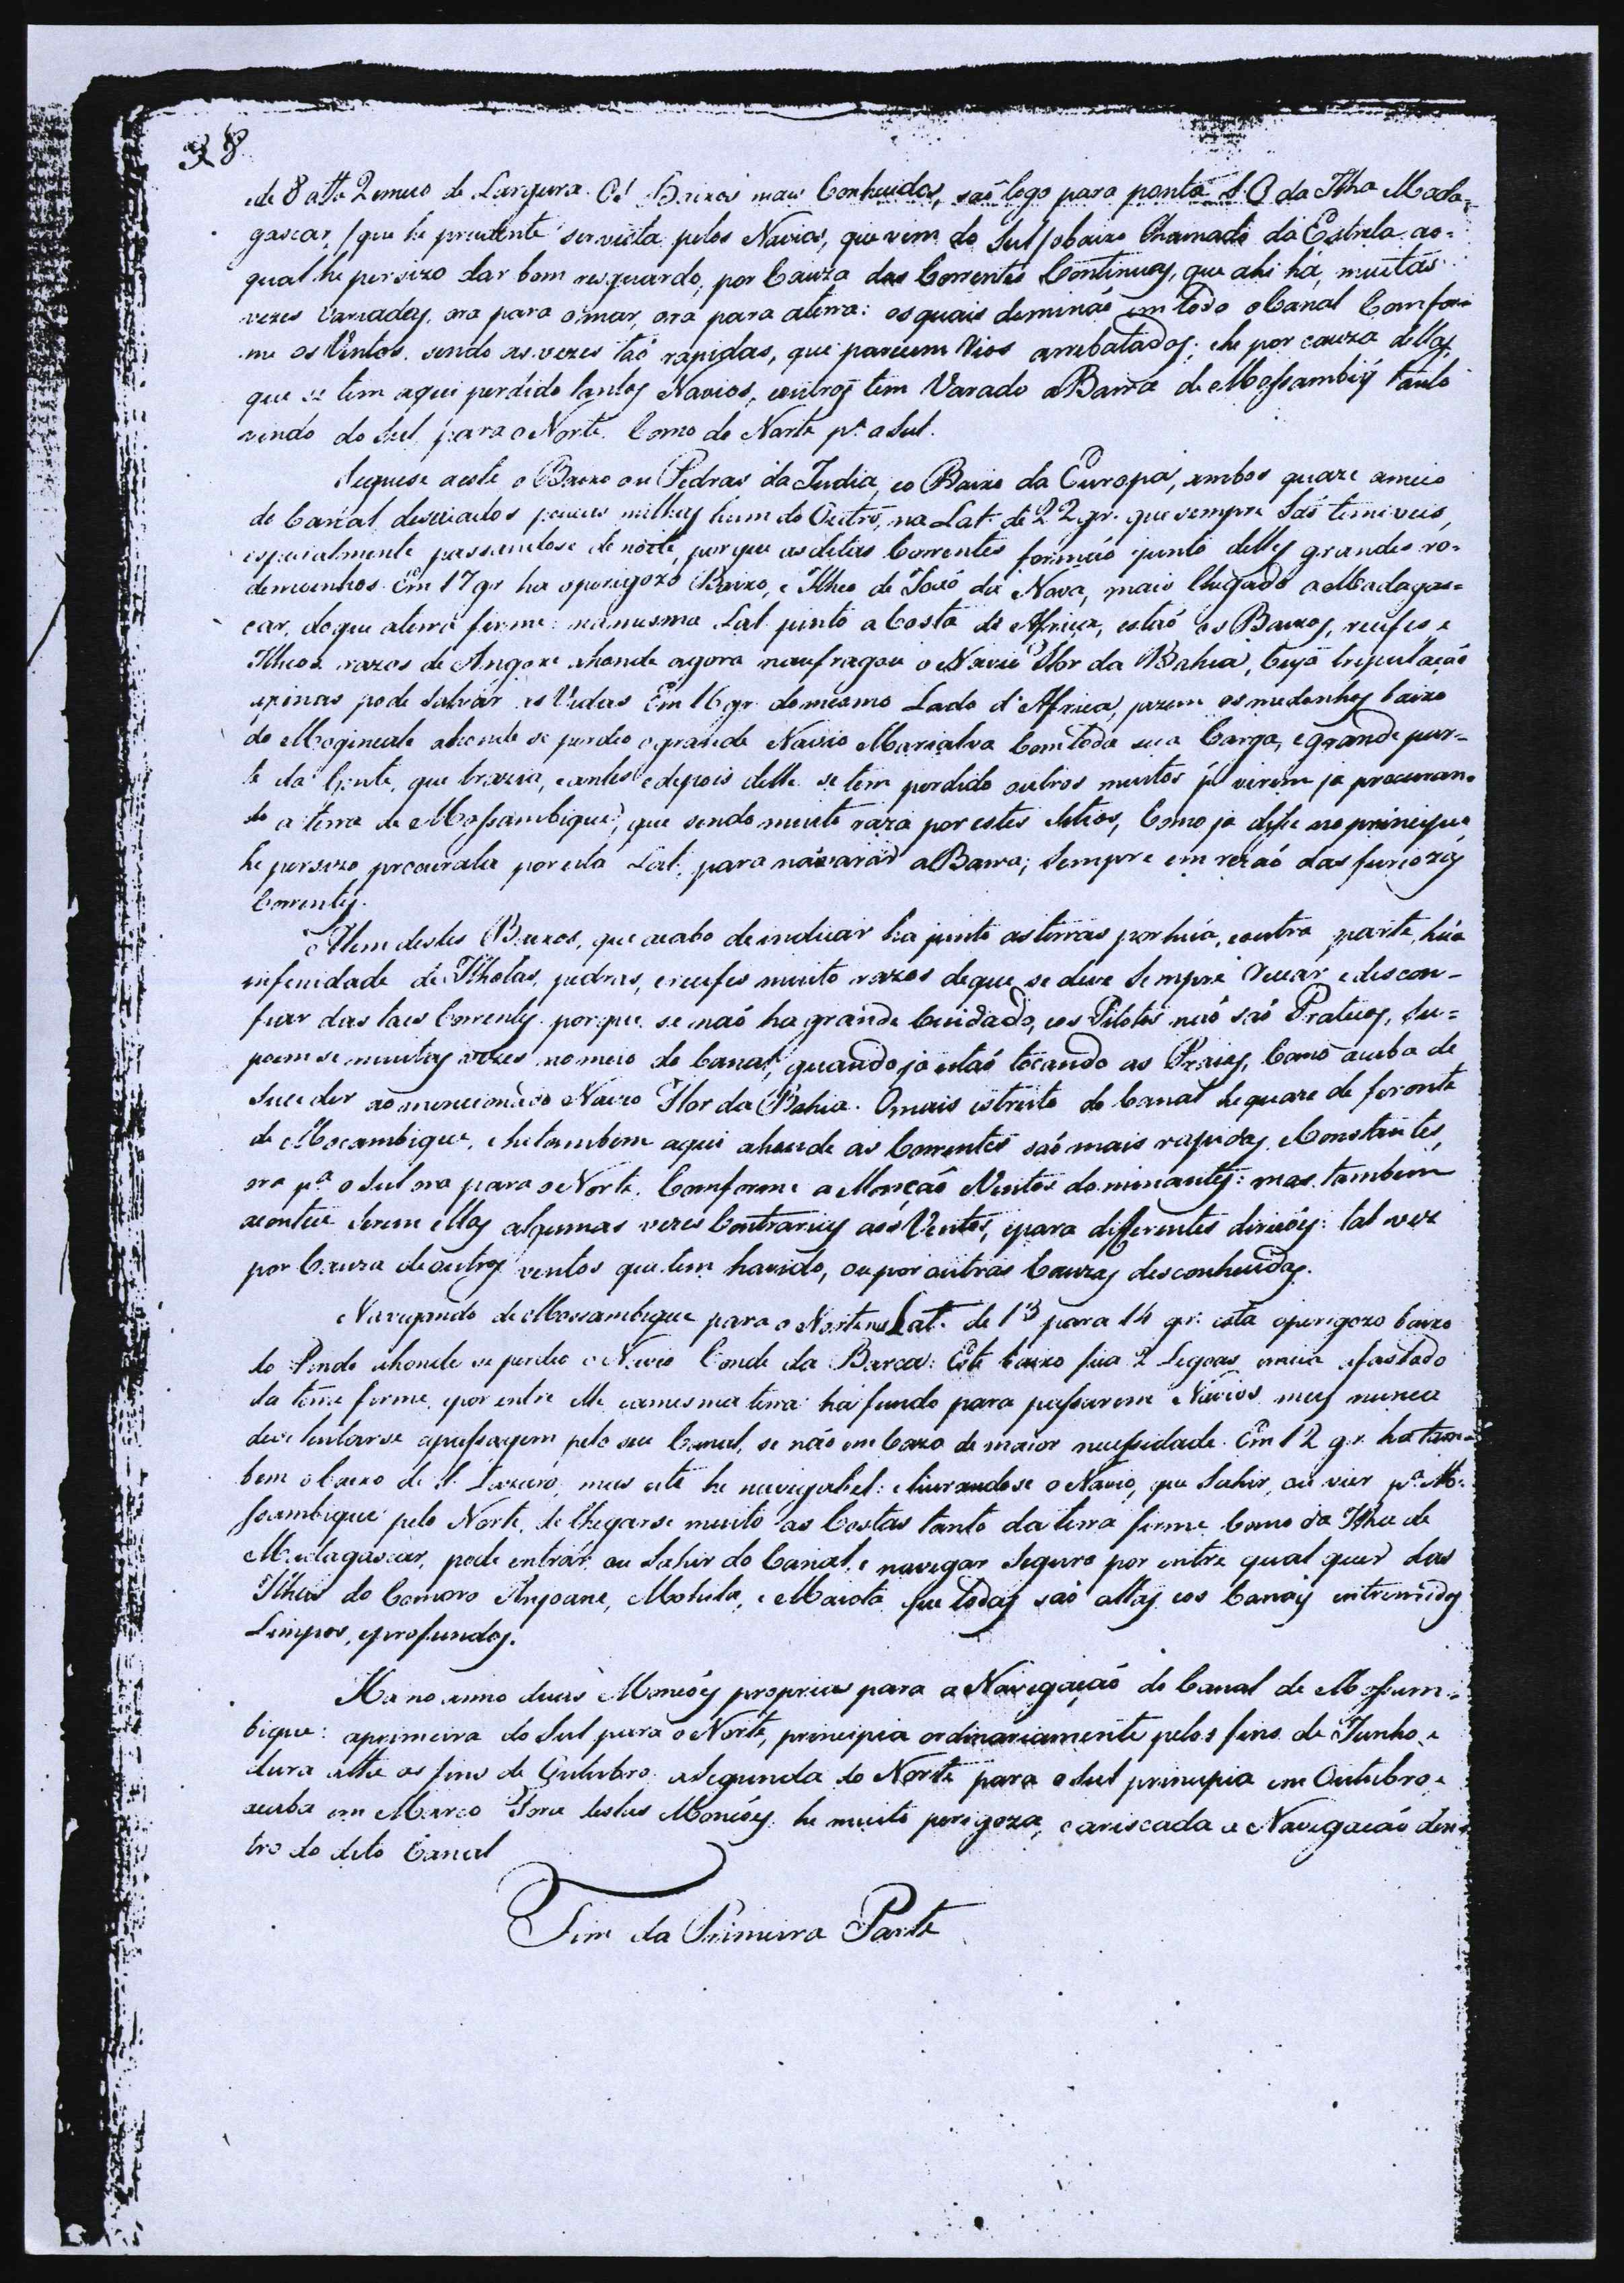 38
de 8 athe 2 e meio de Largura. Os Baixos mais Conhecidos, saõ logo para ponta S.O da Ilha Mada=
gascar, /que he prudente ser vista pelos Navios, que vem do Sul/ o baixo Chamado da Estrela ao=
qual he persizo dar bom resguardo, por Cauza das Correntes Continuas, que ahi há, muitas
vezes Variadas, ora para o mar, ora para a terra: os quais dominaõ em todo o Canal Comfor=
me os Ventos, sendo as vezes taõ rapidas, que parecem Rios arrebatados; e he por cauza dellas,
que se tem aqui perdido tantos Navios, e outros tem Varado a Barra de Mossambiq̃ tanto
vindo do Sul para o Norte. Como do Norte pª o Sul.
Seguese a este o Baixo ou Pedras da Judia, e o Baixo da Europa, ambos quaze a meio
do Canal, desviados poucas milhas hum do Outro, na Lat. de 22 gr. que sempre Saõ temiveis,
especialmente passandose de noite, porque as ditas Correntes formaõ junto delles grandes ro=
demoinhos. Em 17 gr ha o perigozo Baixo, e Ilheo de Joaõ da Nova, mais Chegado a Madagas=
car, do que a terra firme: na mesma Lat. junto a Costa de Africa, estaõ os Baixos, recifes e
Ilheos razos de Angoxe ahonde agora naufragou o Navio Flor da Bahia, Cuja tripulaçaõ
apenas pode Salvar as Vidas. Em 16 gr. do mesmo Lado d'Africa, jazem os medonhos baixo
do Mogincale ahonde se perdeo o grande Navio Marialva Com toda sua Carga, e grande par=
te da Gente, que trazia, e antes e depois delle se tem perdido outros muitos já virem ja procuran=
do a terra de Mossambique, que sendo muito raza por estes Sitios, Como ja disse no principio,
he persizo procurala por esta Lat. para naõ varar a Barra; Sempre em rezaõ das furiozas
Correntes.
Alem destes Baixos, que acabo de indicar ha junto as terras por huã, e outra parte, huã
infinidade de Ilhotas, pedras, e recifes muito razos de que se deve Sempre recear, e descon=
fiar das taes Correntes porque se naõ ha grande Cuidado, e os Pilotos naõ saõ Praticos, Su=
poem se muitas vezes no meio do Canal, quando ja estaõ tocando as Praias, Como acaba de
Suceder ao mencionado Navio Flor da Bahia. O mais estreito do Canal he quaze de fronte
de Mocambique, e he tambem aqui ahonde as Correntes saõ mais rapidas, e Constantes,
ora pª o Sul ora para o Norte. Comforme a Monçaõ e Ventos dominantes: mas tambem
acontece Serem ellas algumas vezes Contrarias aos Ventos, e para differentes direcoẽs: tal vez
por Cauza de outros ventos que tem havido, ou por outras Cauzas desconhecidas.
Navegando de Mossambique para o Norte na Lat. de 13 para 14 gr. esta o perigozo baixo
do Pinda ahonde se perdeo o Navio Conde da Barca: Este baixo fica 2 Legoas e meia afastado
da terra firme, e por entre elle e a mesma terra ha fundo para passarem Navios mas nunca
deve tentarse a passagem pelo seu Canal, se não em Cazo de maior necessidade. Em 12 gr. ha tam=
bem o baixo de S. Lazaro, mas este he navegabel: e livrandose o Navio, que Sahir, ou vier pª Mo=
ssambique pelo Norte, de Chegarse muito as Costas tanto da terra firme, Como da Ilha de
Madagascar, pode entrar ou Sahir do Canal, e navegar Seguro por entre qual quer das
Ilhas do Comoro Anjoane, Mohila, e Maiota que todas saõ altas, e os Canais entremedios
Limpos, e profundos.
Ha no anno duas Moncoẽs proprias para a Navegaçaõ do Canal de Mossam=
bique: a primeira do Sul para o Norte, principia ordinariamente pelos fins de Junho, e
dura athe os fins de Outubro. a Segunda do Norte para o Sul principia em Outubro e
acaba em Março. Fora destas Moncoẽs he muito perigoza, e ariscada a Navegacaõ den=
tro do dito Canal
Fim da Primeira Parte